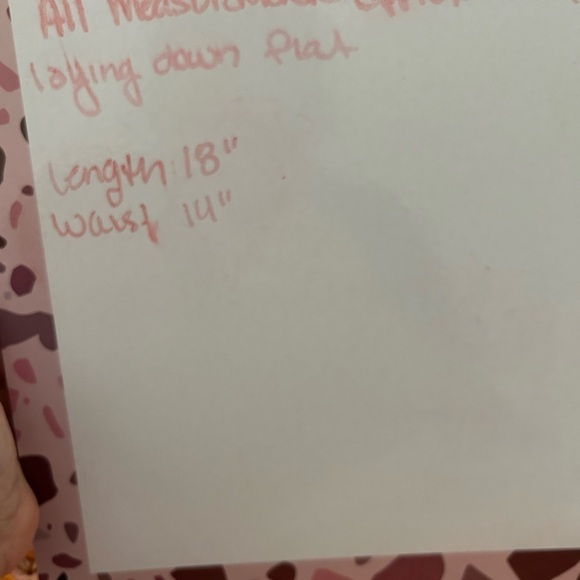 All
laying down flat
Length: 18"
Waist 14"